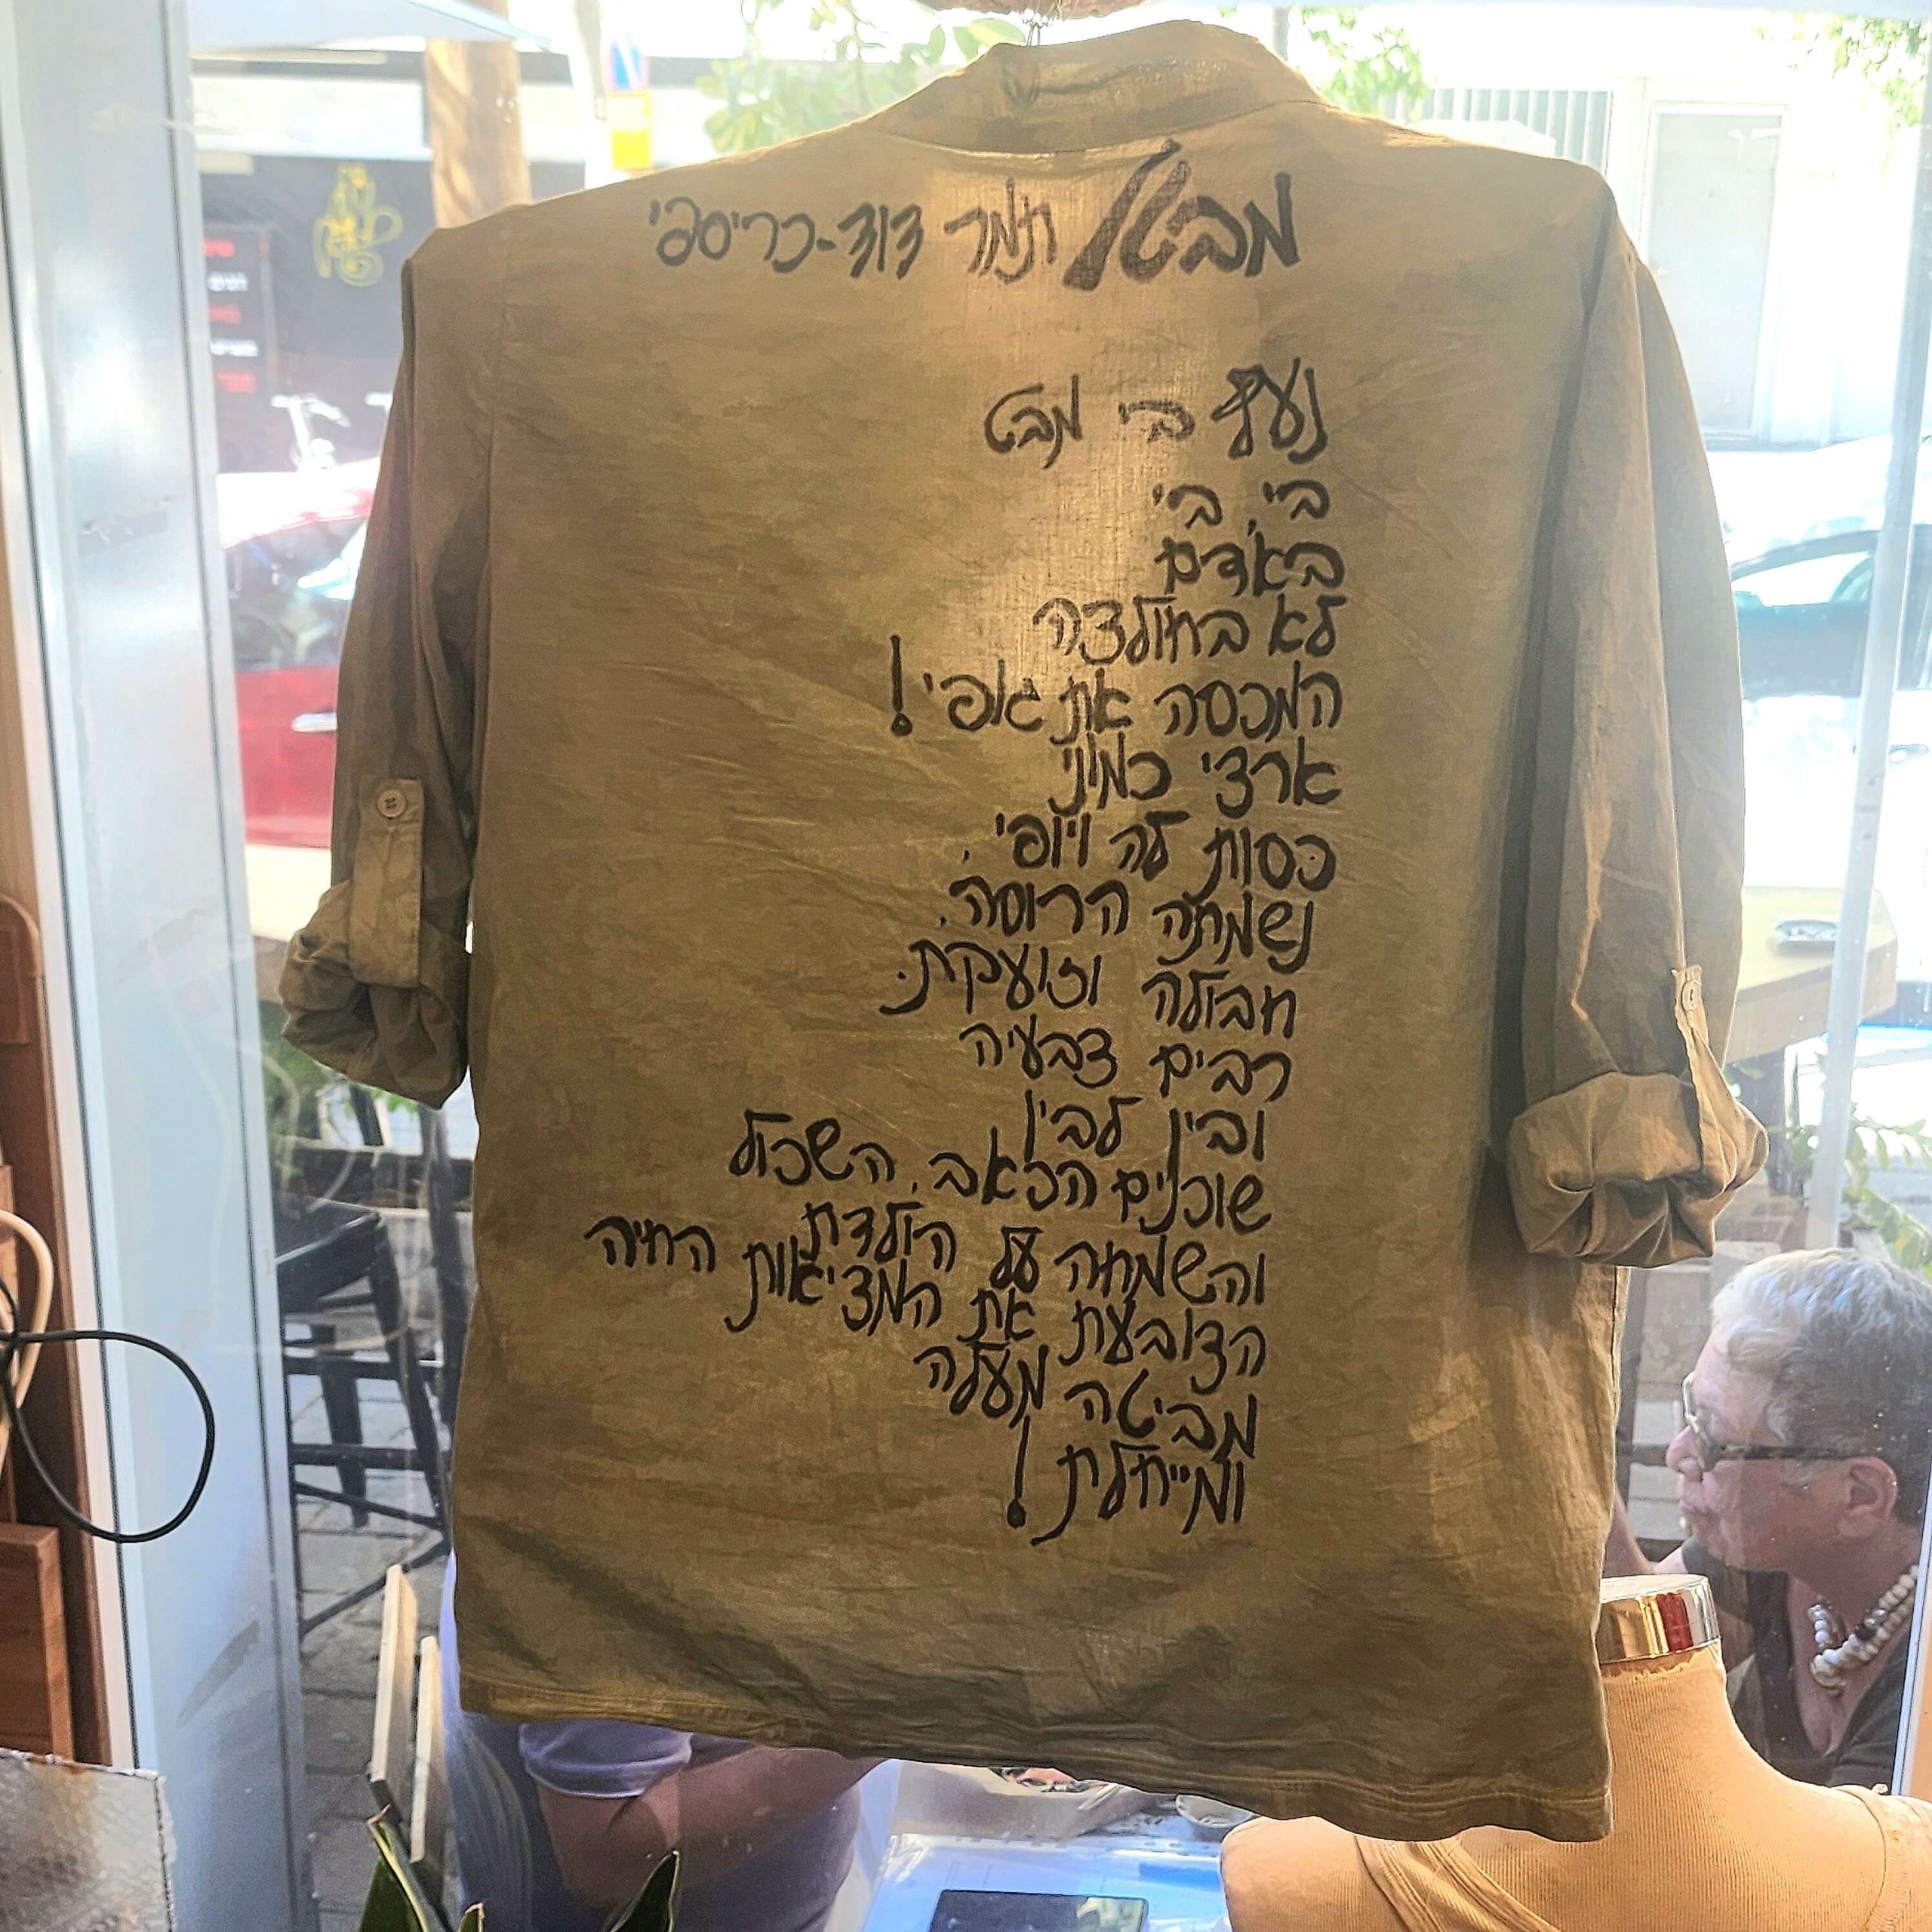 מבט / תמר דוד-כריספי
נעץ בי מבט
בי, בי
באדם
לא בחולצה
המכסה את גופי!
ארצי כמוני
כסות לה ויופי,
נשמתה הרוסה,
חבולה וזועקת.
רבים צבעיה
ובין לבין
שוכנים הכאב, השכול
והשמחה על הולדת
הצובעת את המציאות החיה
מביטה מעלה
ומייחלת!